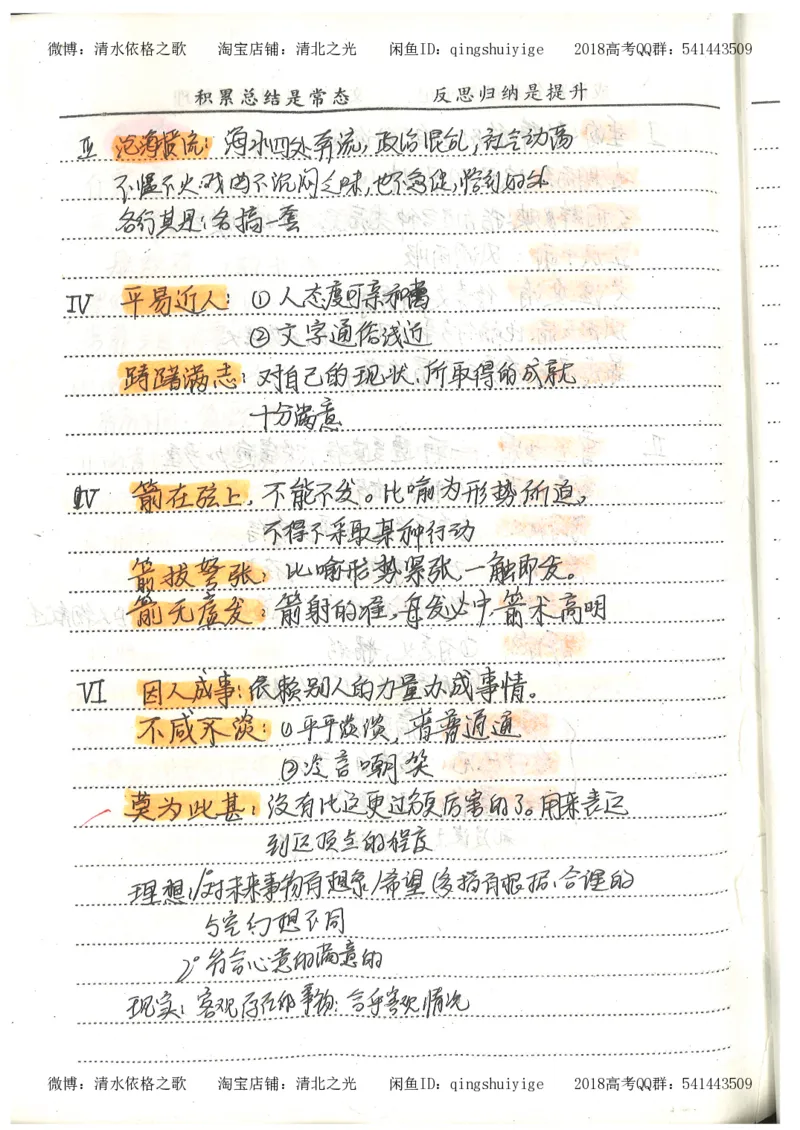 微博：清水依格之歌 淘宝店铺：清北之光 闲鱼ID：qingshuiyige 2018高考QQ群：541443509
积累总结是常态 反思归纳是提升
沧海横流：海水四处奔流，政治混乱，社会动荡
不愠不火：戏曲不沉闷乏味，也不急促，恰到好处
各行其是：各搞一套
IV 平易近人：① 人态度可亲和蔼
② 文字通俗浅近
踌躇满志：对自己的现状、所取得的成就
十分满意
箭在弦上，不能不发。比喻为形势所迫，
不得不采取某种行动
箭拔弩张：比喻形势紧张一触即发。
箭无虚发：箭射的准，每发必中，箭术高明
VI 因人成事：依赖别人的力量办成事情。
不咸不淡：①平平淡淡，普普通通
②冷言嘲笑
莫为此甚：没有比这更过分更厉害的了。用来表达
到达顶点的程度
理想：1°对未来事物有想象/希望（多指有根据、合理的
与空幻想不同
2°符合心意的满意的
现实：客观存在的事物；合乎客观情况
微博：清水依格之歌 淘宝店铺：清北之光 闲鱼ID：qingshuiyige 2018高考QQ群：541443509